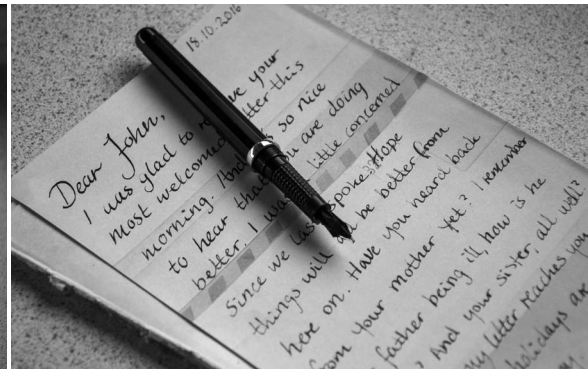 18.10.2016
Dear John,
I was glad to your
most welcomed letter this
morning. And so nice
to hear that you are doing
better, I was little concerned
Since we last spoke. Hope
things will all be better from
here on. Have you heard back
from your mother yet? I remember
father being ill, how is he
? And your sister, all well?
my letter reaches you
holidays are